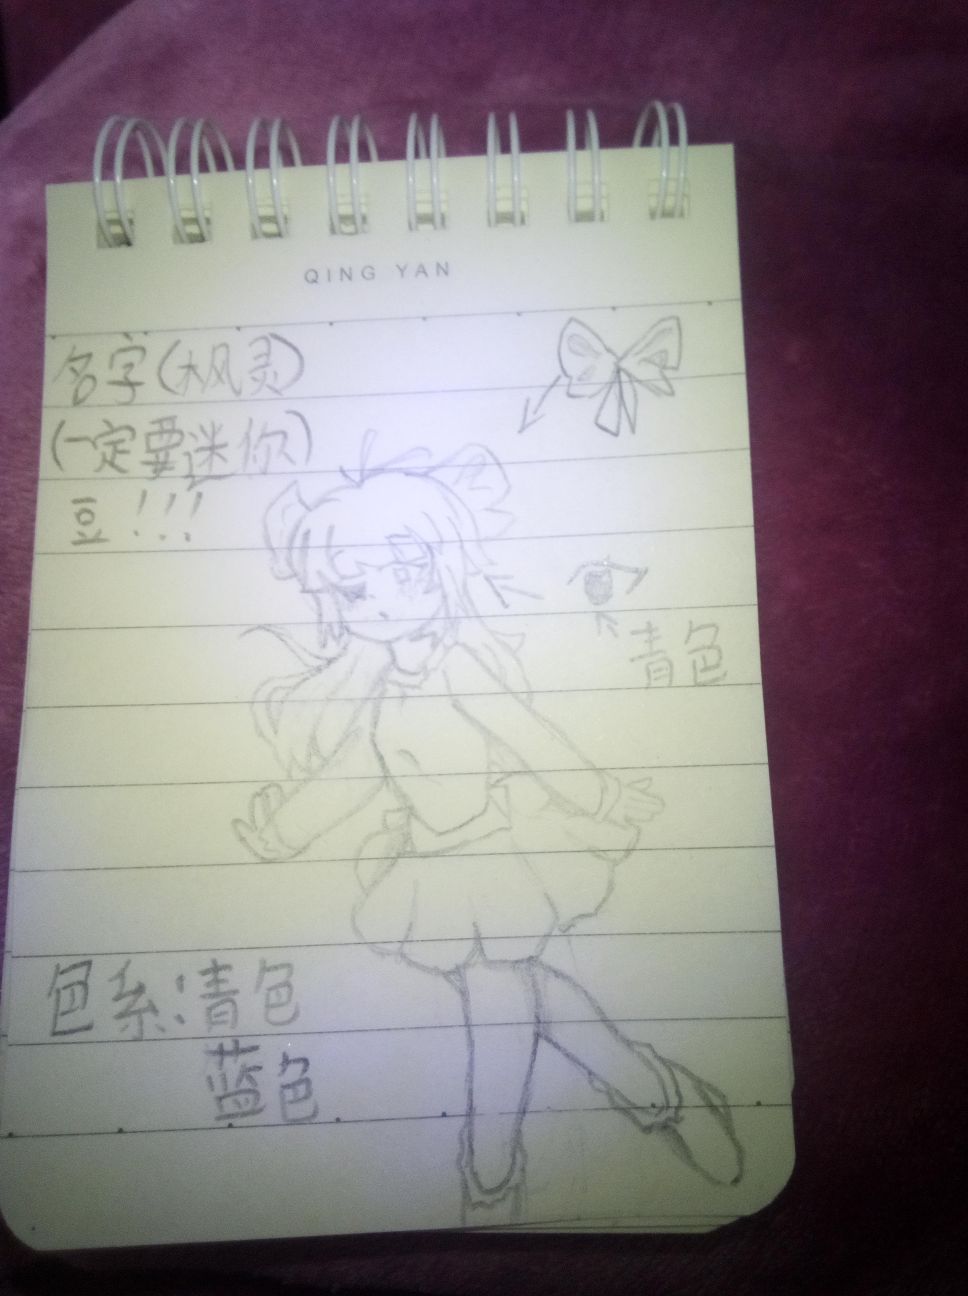 QING YAN
名字(枫灵)
(一定要迷你)
豆!!!
青色
色系:青色
蓝色